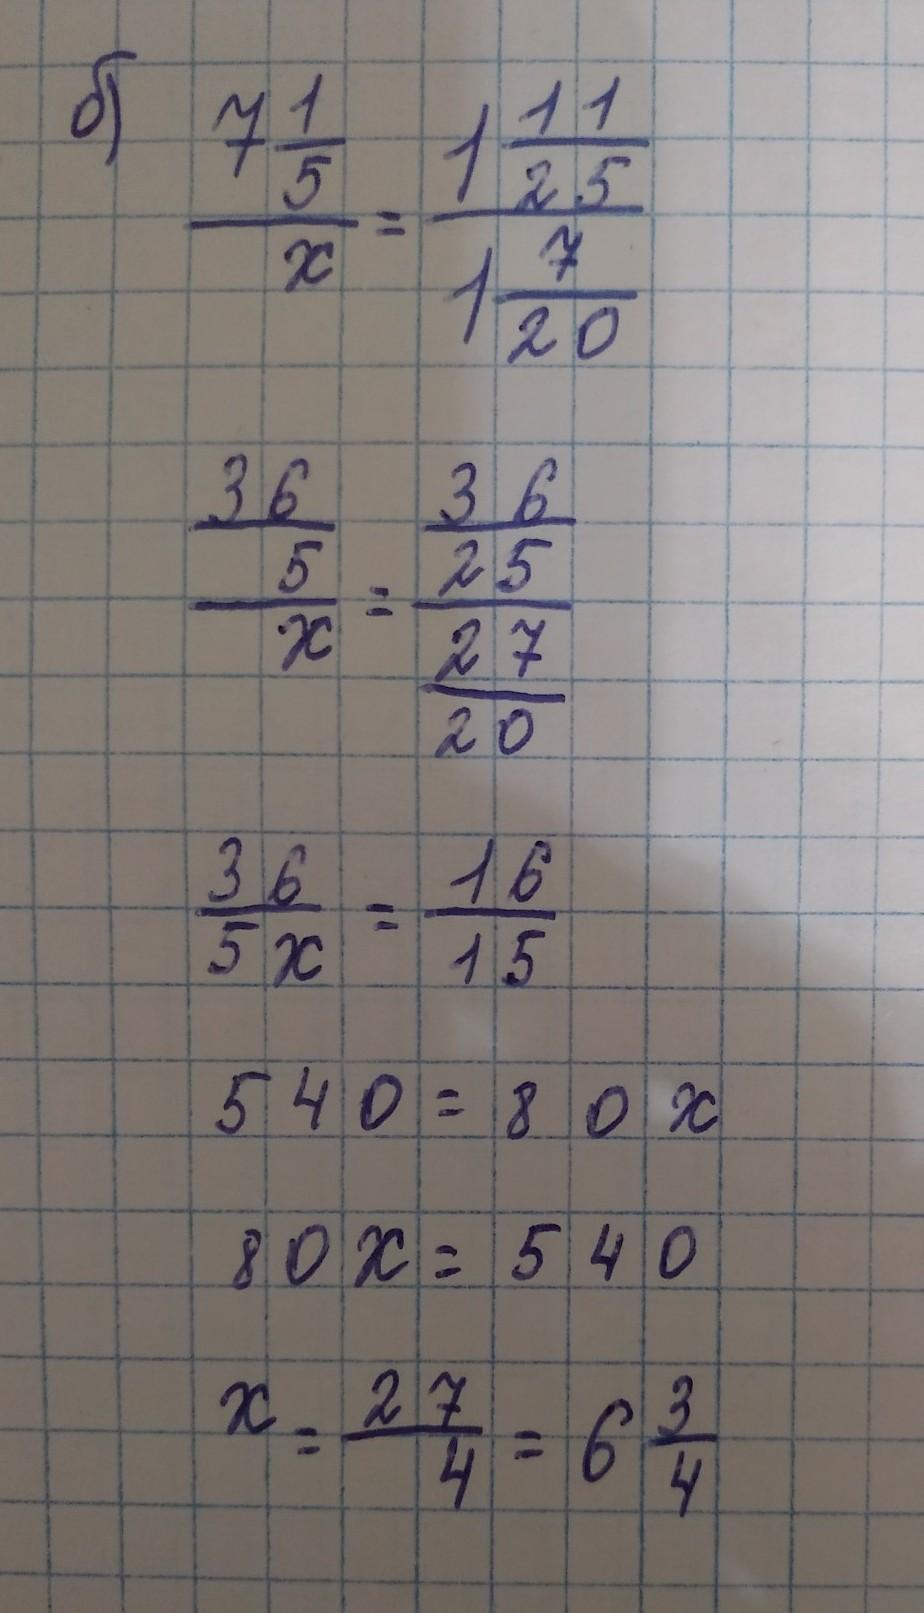 б) 7 1/5 / x = 1 11/25 / 1 7/20
36/5 / x = 36/25 / 27/20
36/5x = 16/15
540 = 80x
80x = 540
x = 27/4 = 6 3/4